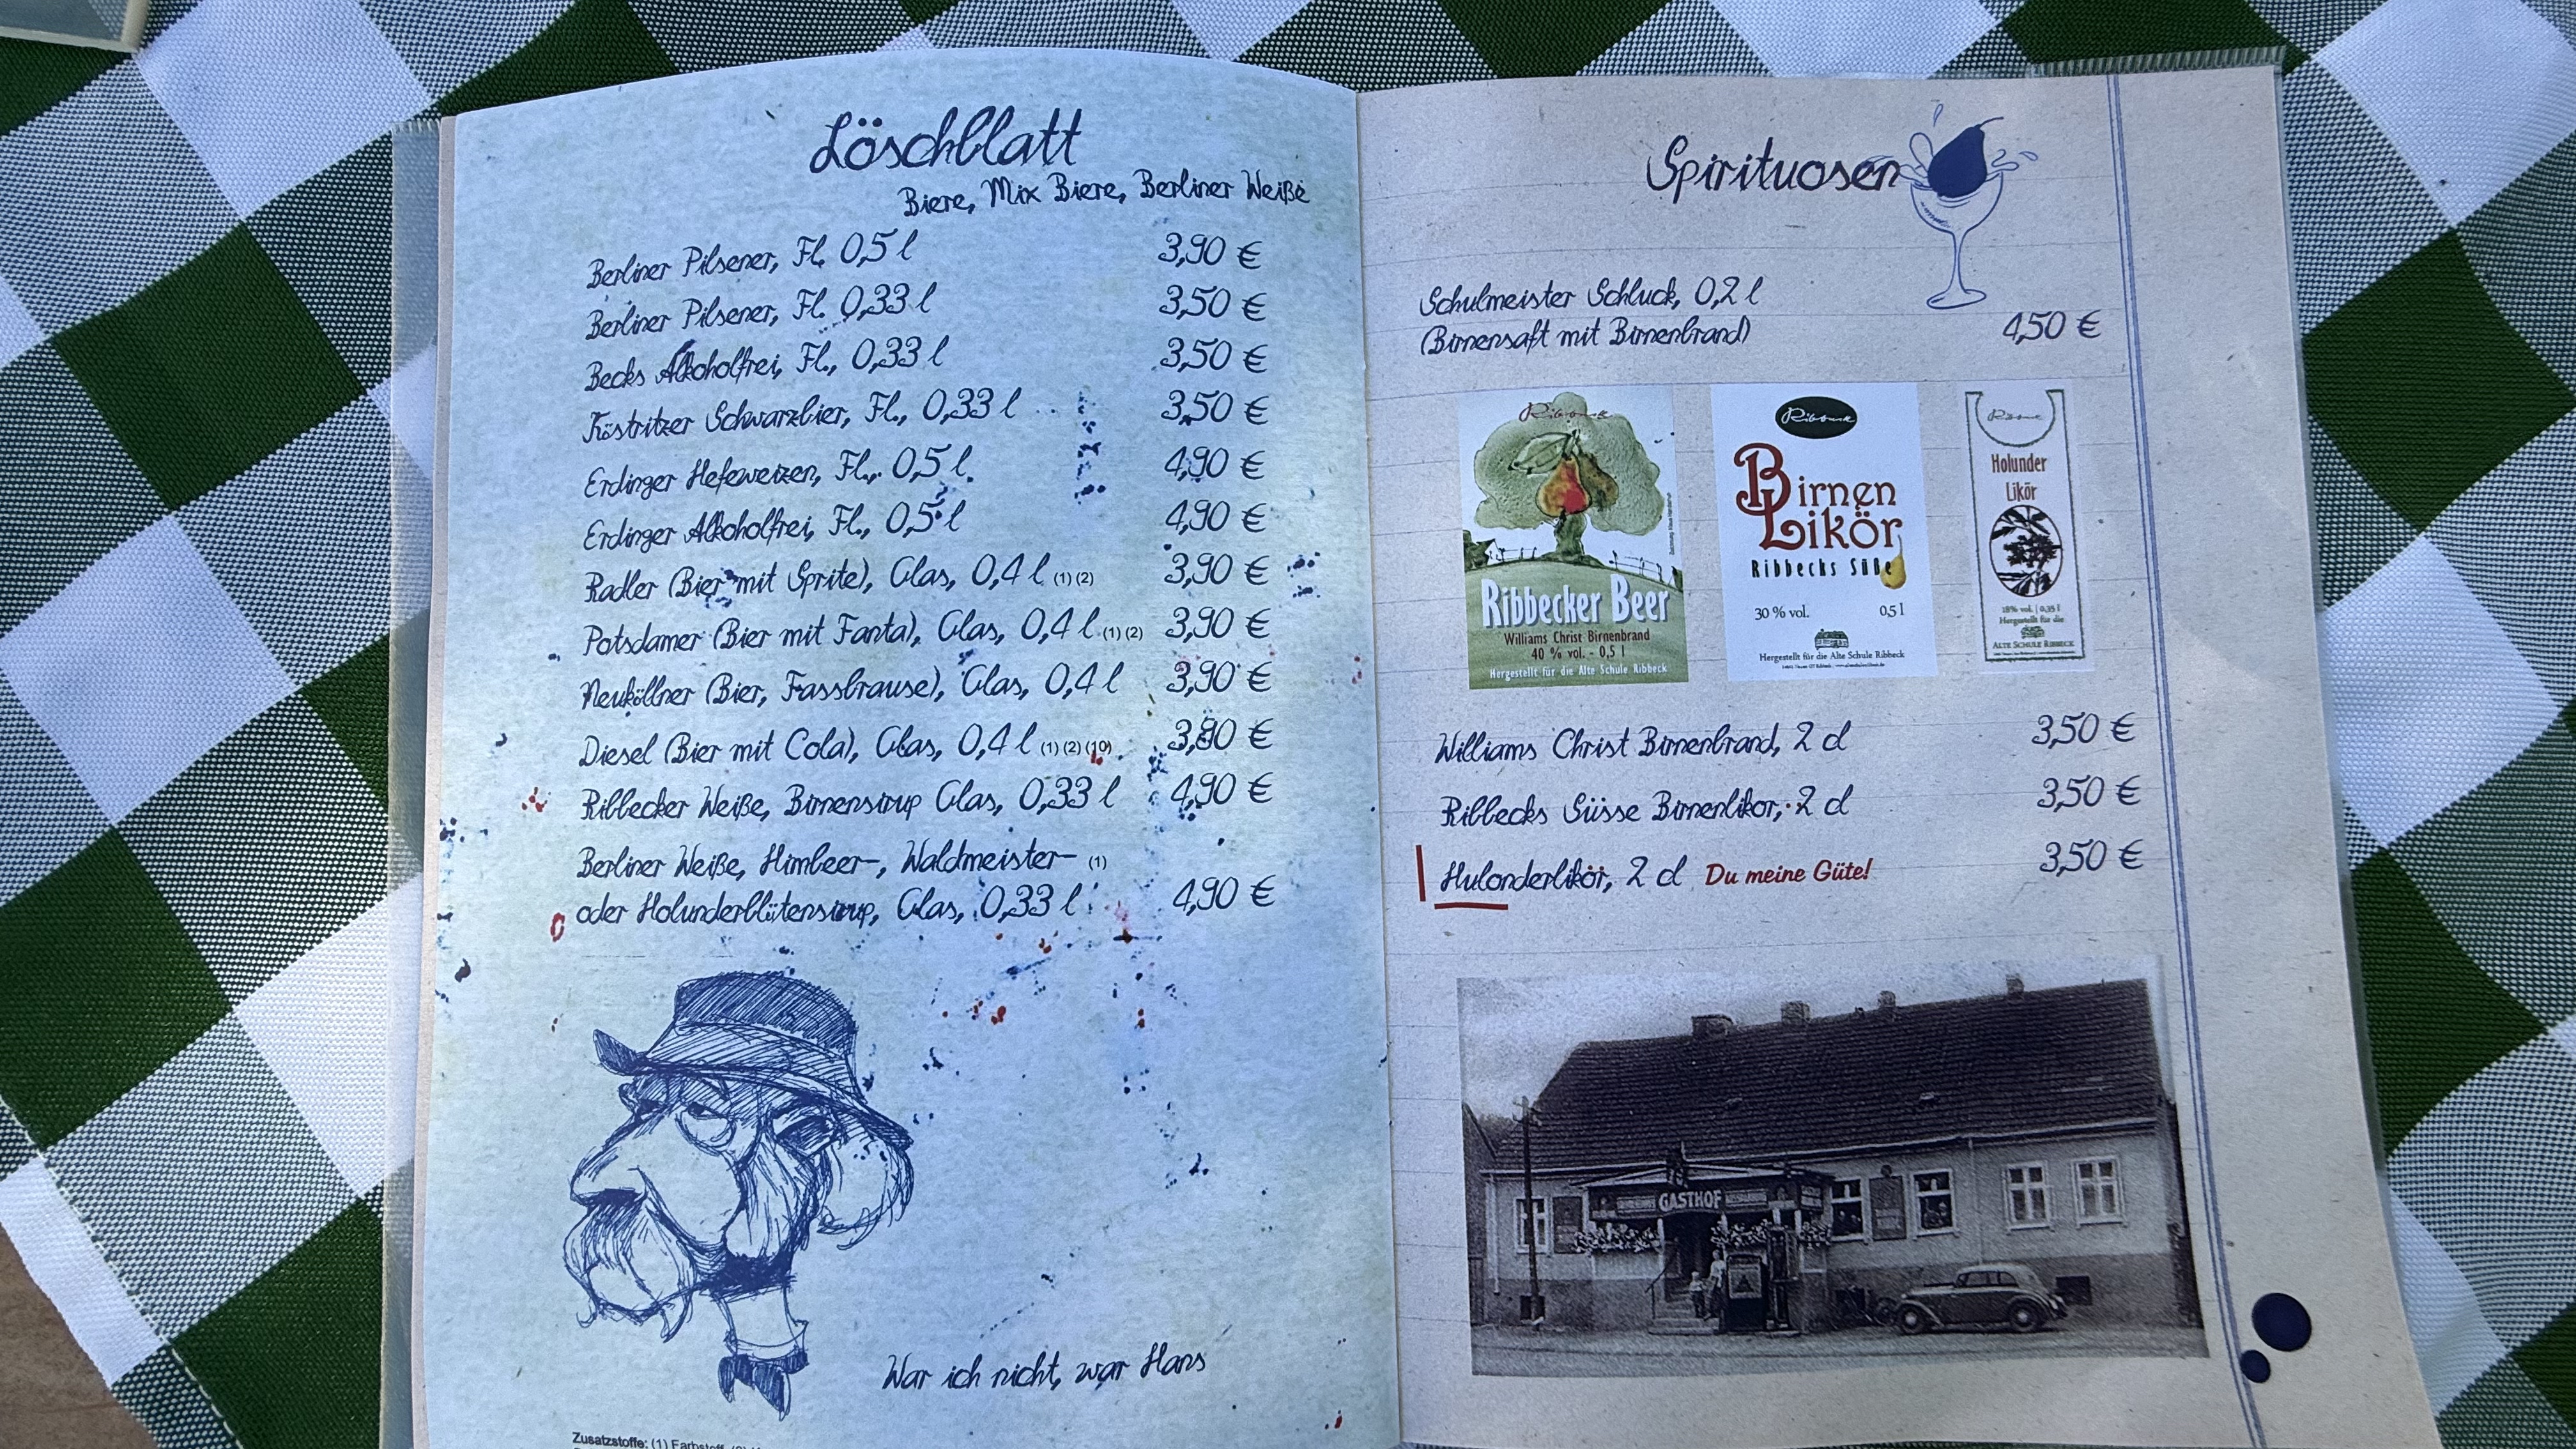 Löschblatt
Biere, Mix Biere, Berliner Weiße
Berliner Pilsener, Fl. 0,5 l 3,90 €
Berliner Pilsener, Fl. 0,33 l 3,50 €
Becks Alkoholfrei, Fl., 0,33 l 3,50 €
Köstritzer Schwarzbier, Fl., 0,33 l 3,50 €
Erdinger Hefeweizen, Fl., 0,5 l 4,90 €
Erdinger Alkoholfrei, Fl., 0,5 l 4,90 €
Radler (Bier mit Sprite), Glas, 0,4 l (1) (2) 3,90 €
Potsdamer (Bier mit Fanta), Glas, 0,4 l (1) (2) 3,90 €
Neuköllner (Bier, Fassbrause), Glas, 0,4 l 3,90 €
Diesel (Bier mit Cola), Glas, 0,4 l (1) (2) (10) 3,90 €
Ribbecker Weiße, Birnensirup Glas, 0,33 l 4,90 €
Berliner Weiße, Himbeer-, Waldmeister- (1)
oder Holunderblütensirup, Glas, 0,33 l 4,90 €
War ich nicht, war Hans
Zusatzstoffe: (1) Farbstoff,
Spirituosen
Schulmeister Schluck, 0,2 l
(Birnensaft mit Birnenbrand) 4,50 €
Ribbeck
Ribbecker Beer
Williams Christ Birnenbrand
40 % vol. - 0,5 l
Hergestellt für die Alte Schule Ribbeck
Ribbeck
Birnen
Likör
Ribbecks Süße
30 % vol. 0,5 l
Hergestellt für die Alte Schule Ribbeck
Holunder
Likör
18% vol. | 0,35 l
Hergestellt für die
ALTE SCHULE RIBBECK
Williams Christ Birnenbrand, 2 cl 3,50 €
Ribbecks Süsse Birnenlikör, 2 cl 3,50 €
Hulonderlikör, 2 cl Du meine Güte! 3,50 €
GASTHOF